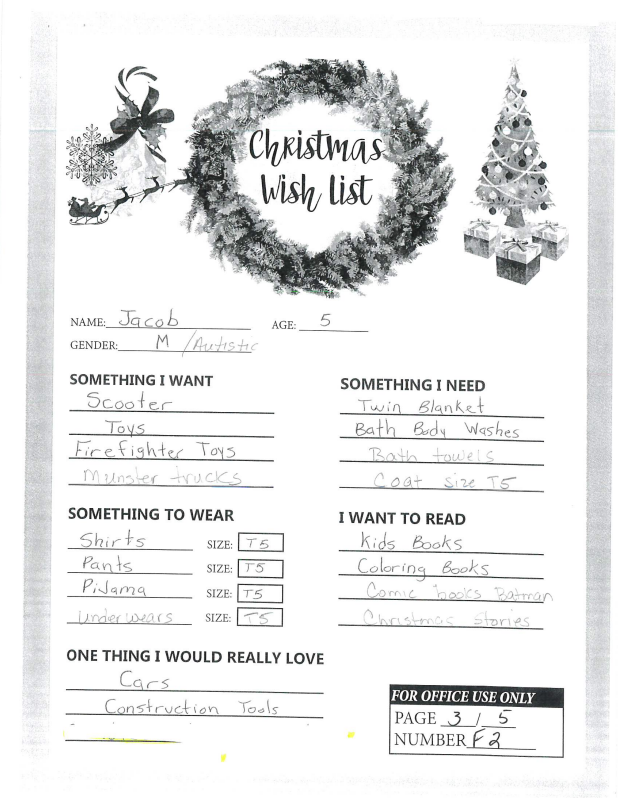 Christmas
Wish List
NAME: Jacob AGE: 5
GENDER: M /Autistic
SOMETHING I WANT
Scooter
Toys
Firefighter Toys
Munster trucks
SOMETHING I NEED
Twin Blanket
Bath Body Washes
Bath towels
Coat size T5
SOMETHING TO WEAR
Shirts SIZE: T5
Pants SIZE: T5
PiJama SIZE: T5
underwears SIZE: T5
I WANT TO READ
Kids Books
Coloring Books
Comic books Batman
Christmas Stories
ONE THING I WOULD REALLY LOVE
Cars
Construction Tools
FOR OFFICE USE ONLY
PAGE 3 / 5
NUMBER F2